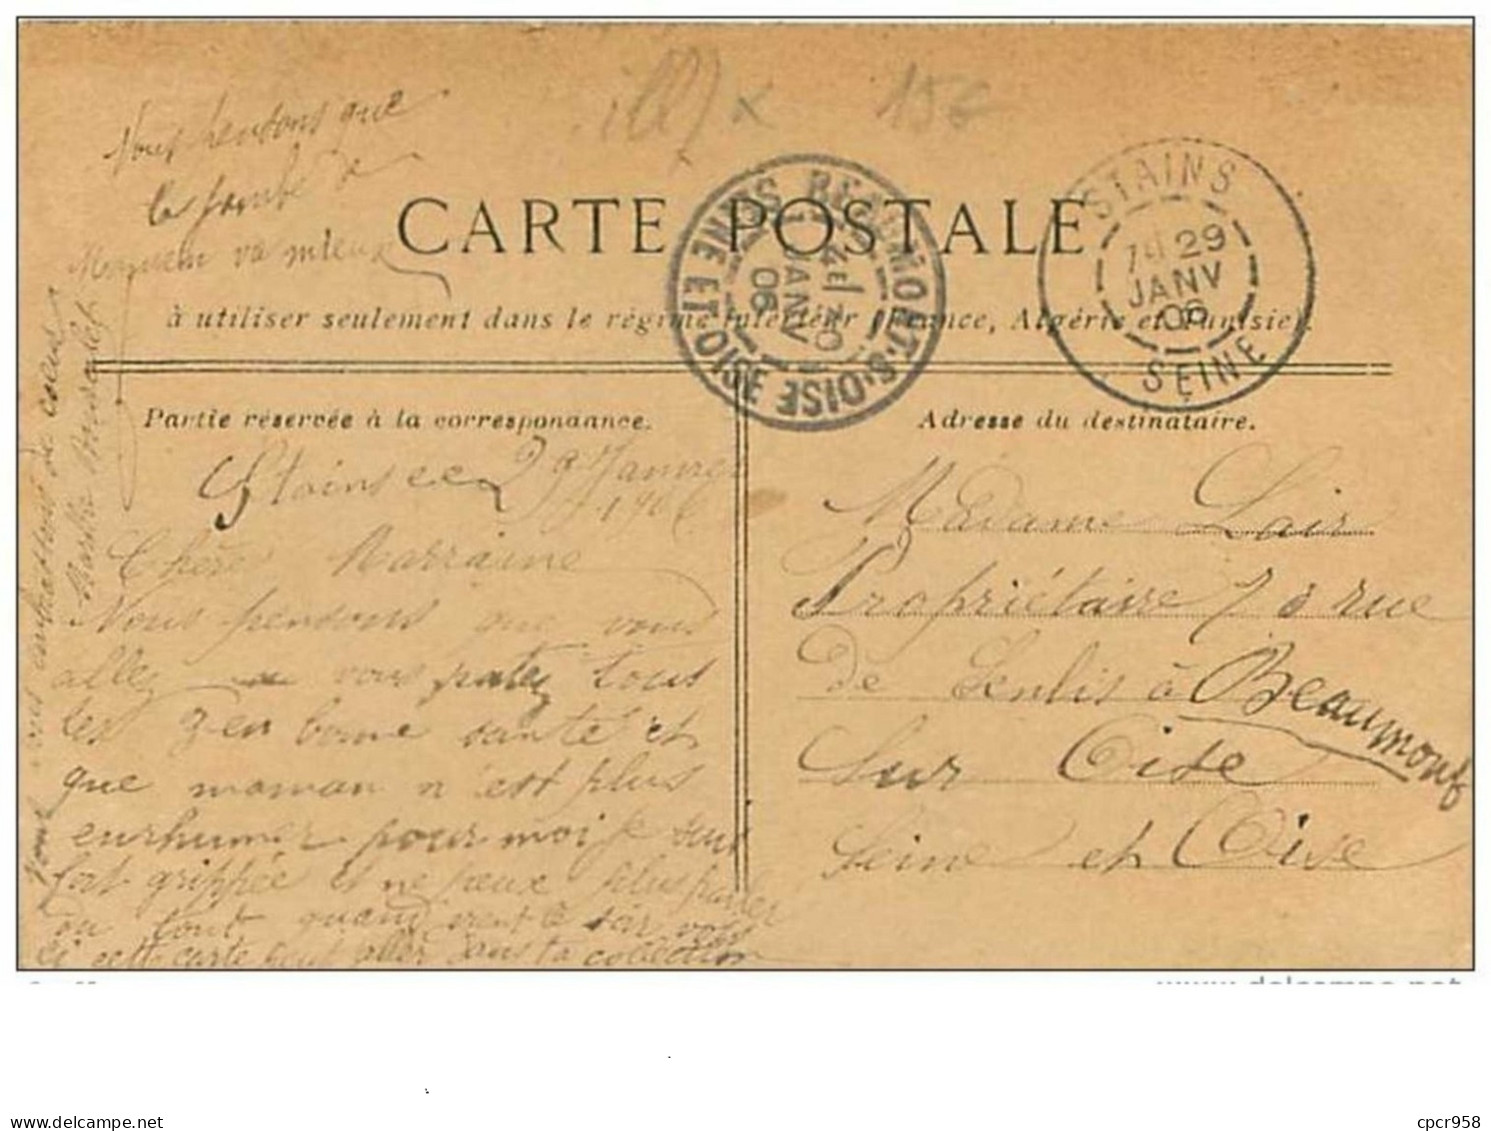 ill) x 15€
Nous pensons que
la jambe de
Monsieur va mieux
CARTE POSTALE
à utiliser seulement dans le régime intérieur (France, Algérie et Tunisie).
BEAUMONT-S-OISE
SEINE ET OISE
30
JANV
06
STAINS
29
JANV
06
SEINE
Partie réservée à la correspondance.
Adresse du destinataire.
Stains ce 29 Janvier
1906
Chère Marraine
Nous pensons que vous
allez vous portez tous
les en bonne santé et
que maman n'est plus
enrhumer pour moi je suis
fort grippée et ne peux plus parler
du tout quand vient le soir
si cette carte peut aller dans ta collection
de cœur
Marthe
Madame Lair
Propriétaire rue
de Senlis à Beaumont
Sur Oise
Seine et Oise
www.delcampe.net
cpcr958